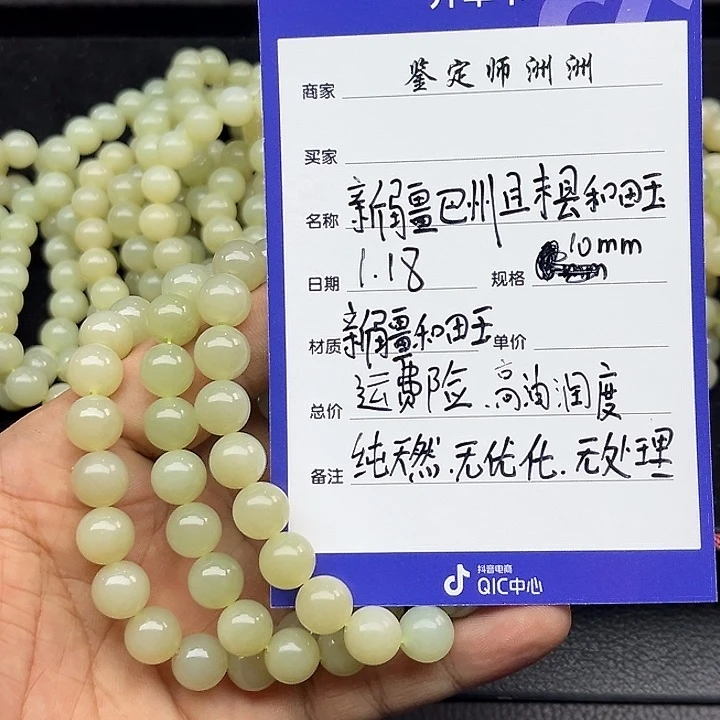 商家 鉴定师洲洲
买家
名称 新疆巴州且末县和田玉
日期 1.18 规格 10mm
材质 新疆和田玉 单价
总价 运费险.高油润度
备注 纯天然.无优化.无处理
抖音电商
QIC中心